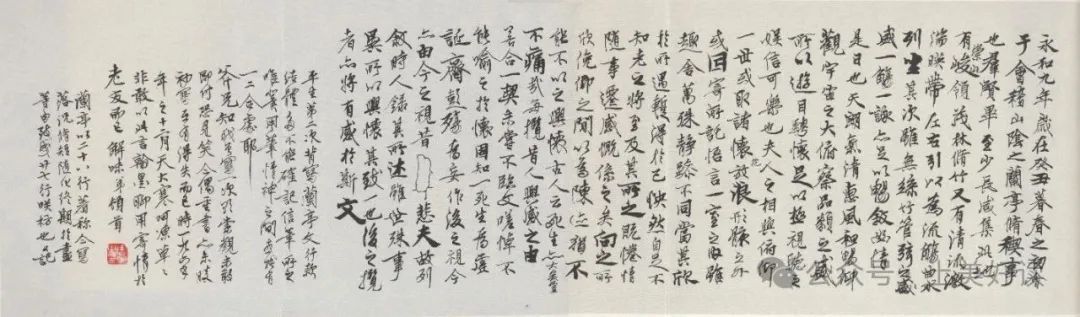 永和九年歲在癸丑暮春之初會
于會稽山陰之蘭亭脩稧事
也羣賢畢至少長咸集此地
有崇山峻領茂林脩竹又有清流激
湍暎帶左右引以為流觴曲水
列坐其次雖無絲竹管弦之盛
一觴一詠亦足以暢敘幽情
是日也天朗氣清惠風和暢仰
觀宇宙之大俯察品類之盛
所以遊目騁懷足以極視聽之
娛信可樂也夫人之相與俯仰
一世或取諸懷放浪形骸之外
或因寄所託悟言一室之內雖
趣舍萬殊靜躁不同當其欣
於所遇暫得於己怏然自足不
知老之將至及其所之既惓情
隨事遷感慨係之矣向之所
欣俛仰之間以為陳迹猶不
能不以之興懷古人云死生亦大矣豈
不痛哉每攬昔人興感之由
若合一契未嘗不臨文嗟悼不
能喻之於懷固知一死生為虛
誕齊彭殤為妄作後之視今
亦由今之視昔悲夫故列
敘時人錄其所述雖世殊事
異所以興懷其致一也後之攬
者亦將有感於斯文
平生第二次背寫蘭亭文行款
結體多不能確記信筆所之
唯冀用筆情神之間或偶有
一二合處耶
知我背寫一次
即付恐見笑今偶重書亦未悏
初寫互有得失而已時
年之十二月天大寒呵凍草草
非敢以資言論墨聊用寄情於
老友而已
蘭亭以二十八行著稱今寫
落況脩短隨化終期於盡
廿七行
公众号 上美好读